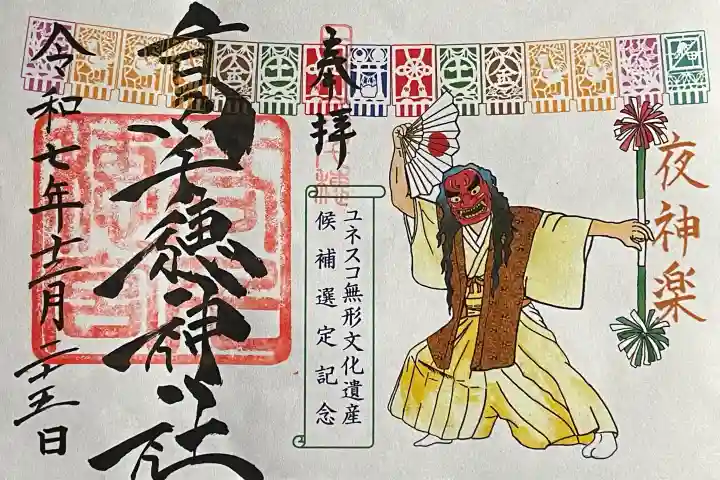 夜神楽
奉拝
ユネスコ無形文化遺産
候補選定記念
高千穂神社
令和七年十二月二十五日
土
金
土
金